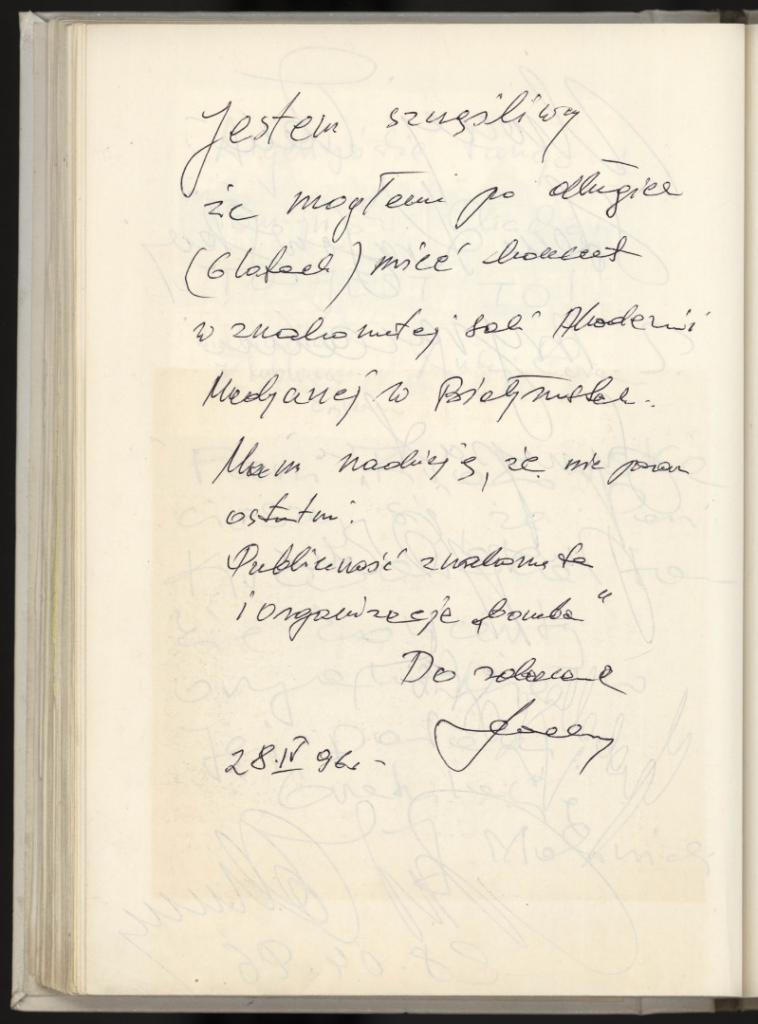 Jestem szczęśliwy
że mogłem po długich
(6 latach) mieć koncert
w znakomitej sali Akademii
Medycznej w Białymstoku.
Mam nadzieję, że nie poraz
ostatni.
Publiczność znakomita
i organizacja „bomba”
Do zobaczenia
28.IV 96r.-